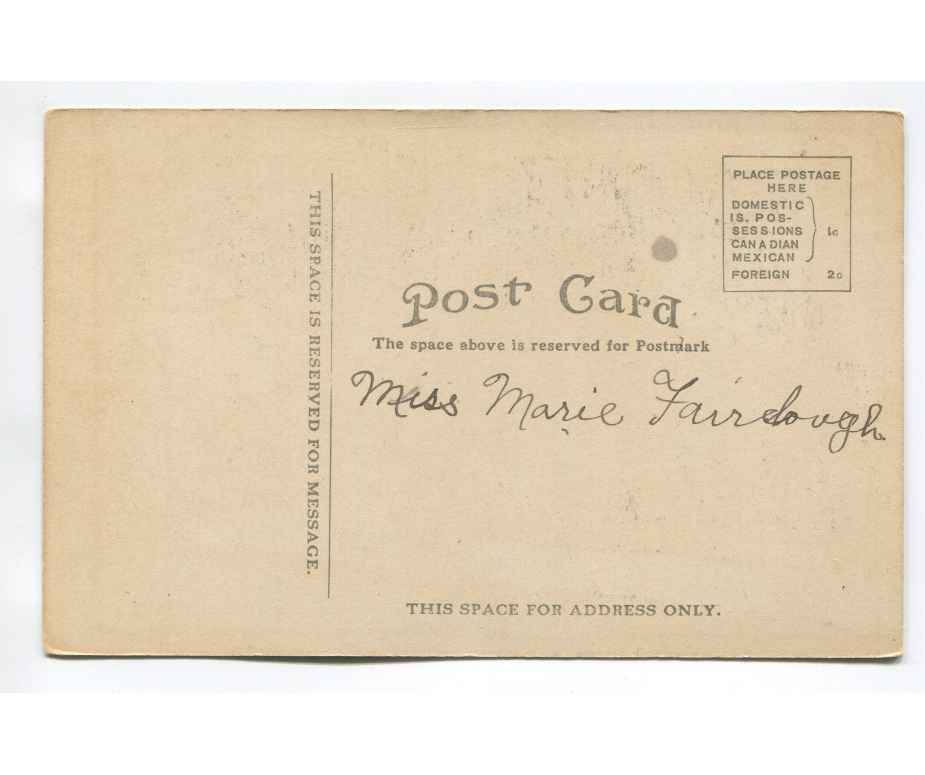 PLACE POSTAGE
HERE
DOMESTIC
IS. POS-
SESSIONS
CANADIAN
MEXICAN
1c
FOREIGN 2c
THIS SPACE IS RESERVED FOR MESSAGE.
Post Card
The space above is reserved for Postmark
Miss Marie Fairclough
THIS SPACE FOR ADDRESS ONLY.